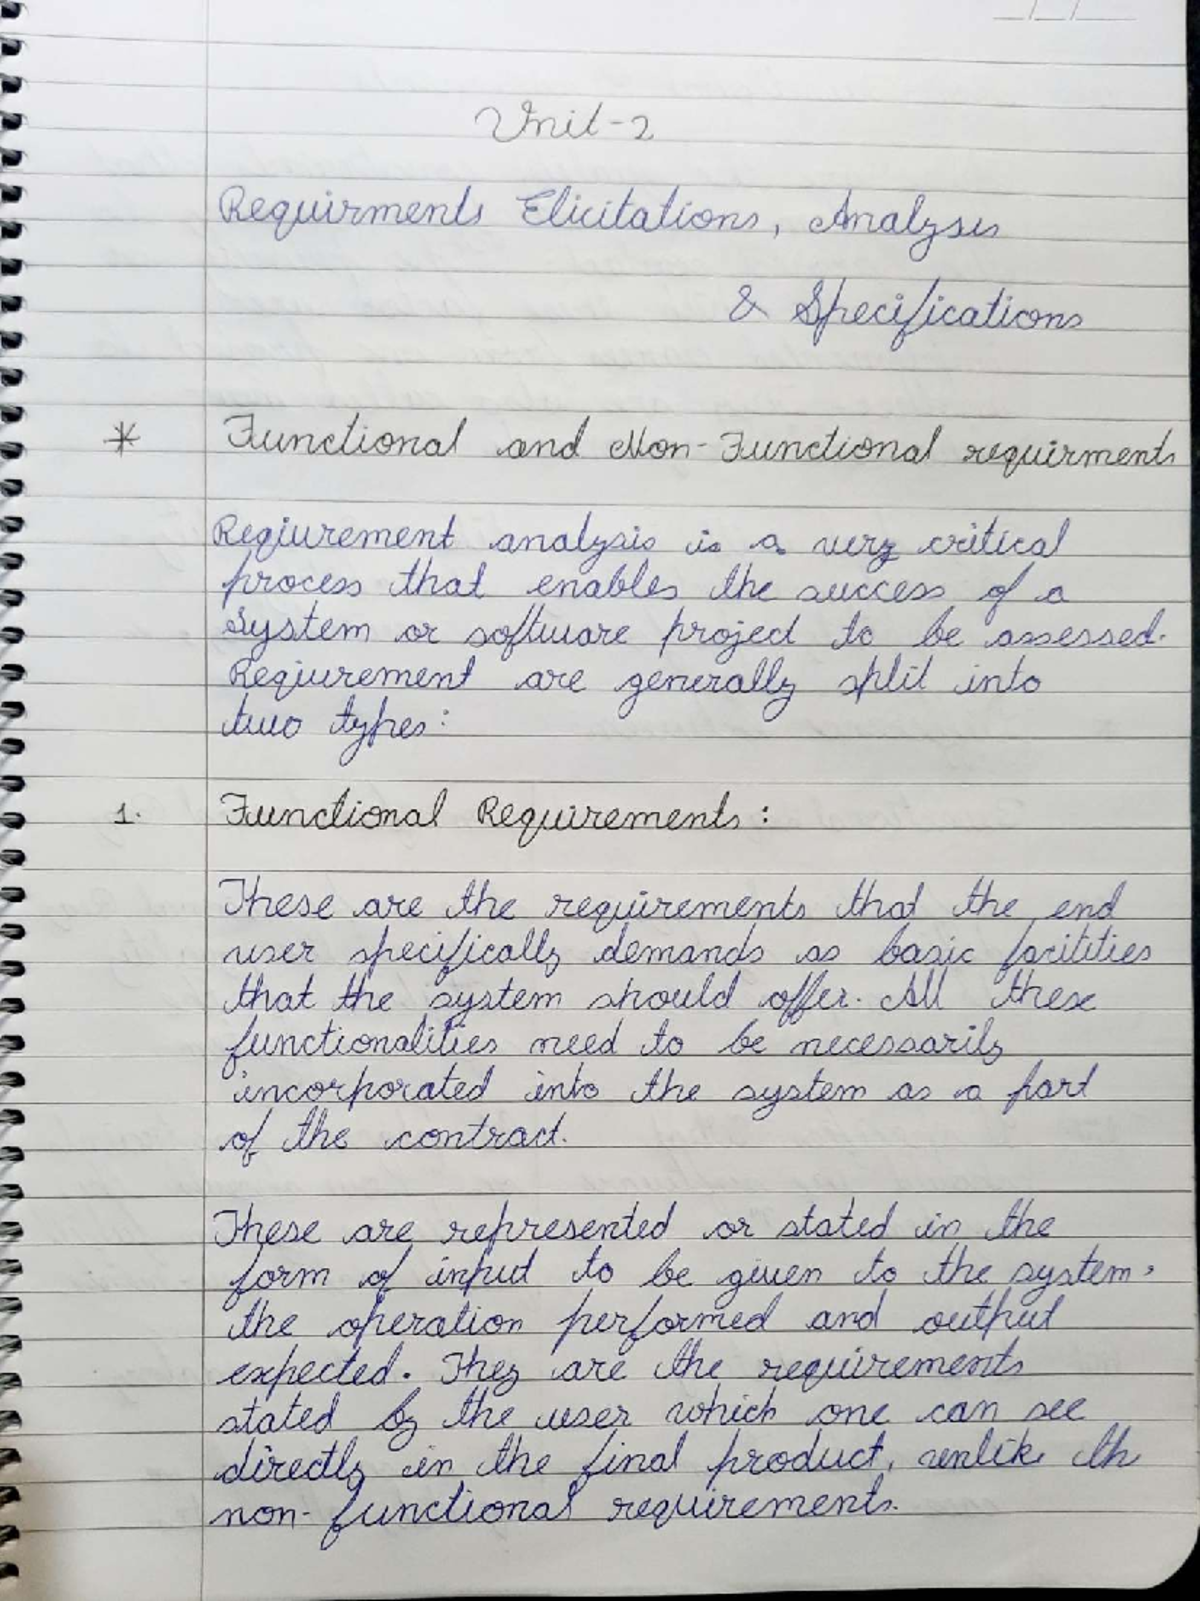 Unit-2
Requirments Elicitations, Analysis
& Specifications
* Functional and Non-Functional requirments
Reqiurement analysis is a very critical
process that enables the success of a
system or software project to be assessed.
Reqiurement are generally split into
two types:
1. Functional Requirements:
These are the requirements that the end
user specifically demands as basic facilities
that the system should offer. All these
functionalities need to be necessarily
incorporated into the system as a part
of the contract.
These are represented or stated in the
form of input to be given to the system,
the operation performed and output
expected. They are the requirements
stated by the user which one can see
directly in the final product, unlik th
non-functional requirements.